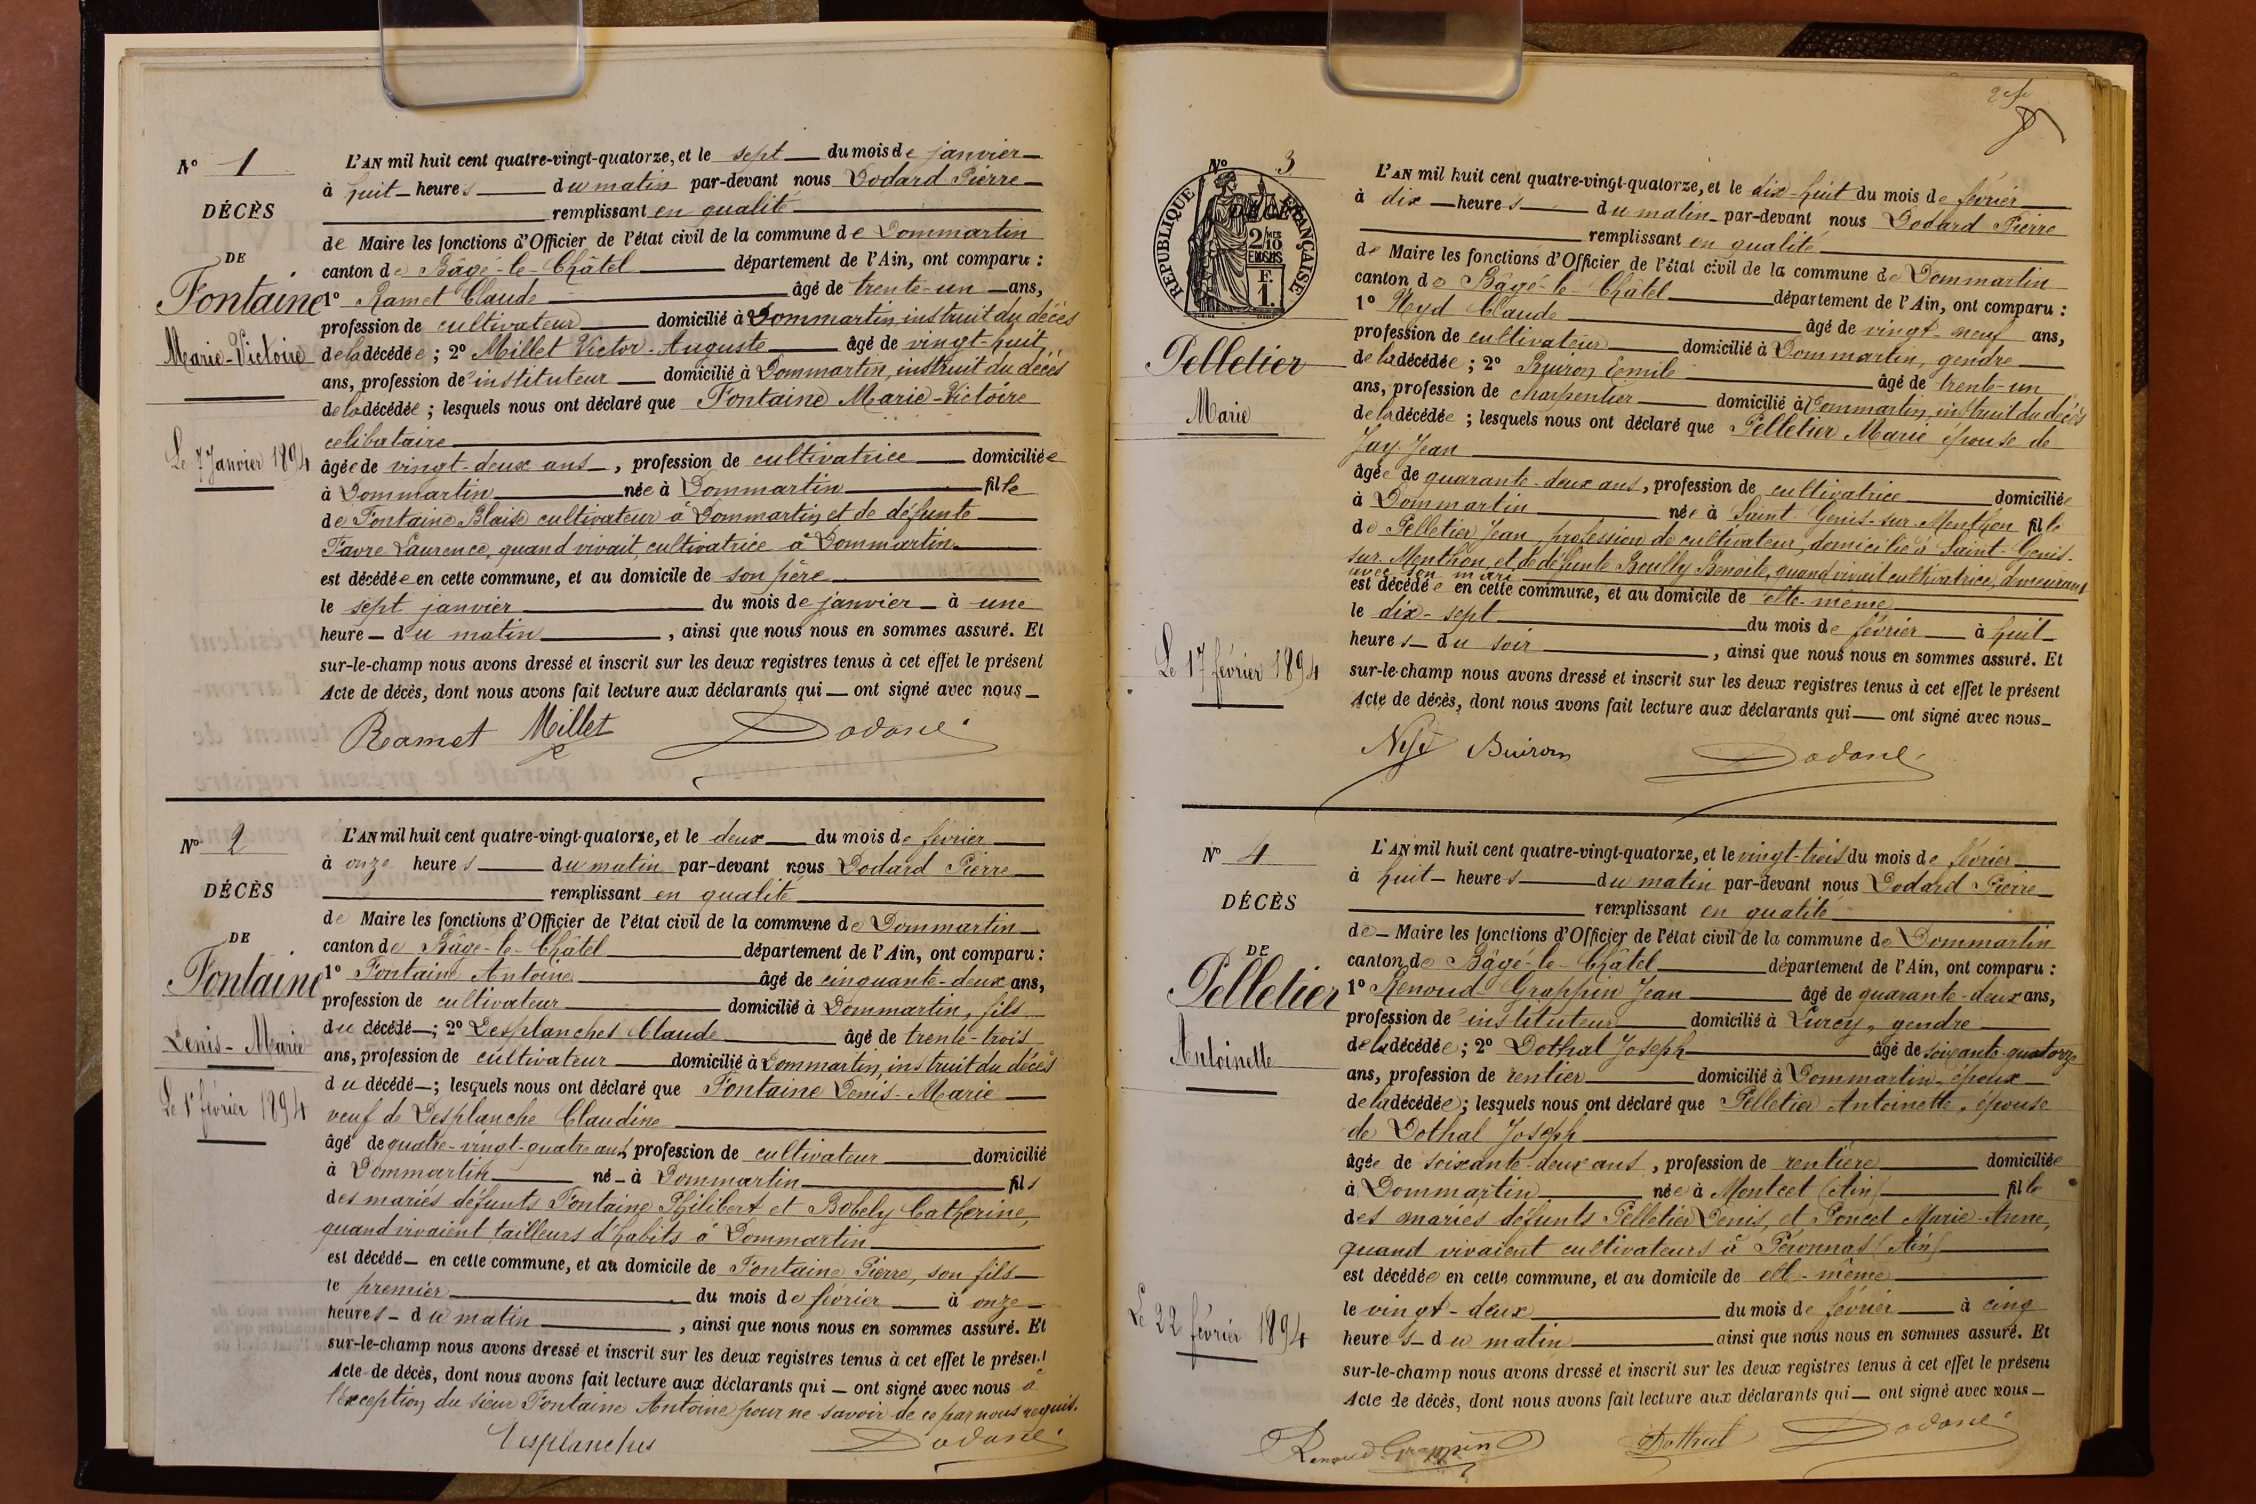 Nº 1
DÉCÈS
DE
Fontaine
Marie-Victoire
Le 7 Janvier 1894
L'AN mil huit cent quatre-vingt-quatorze, et le sept du mois de janvier
à huit heures du matin par-devant nous Dodard Pierre
remplissant en qualité
de Maire les fonctions d'Officier de l'état civil de la commune de Dommartin
canton de Bâgé-le-Châtel département de l'Ain, ont comparu :
1º Ramet Claude âgé de trente-un ans,
profession de cultivateur domicilié à Dommartin, instruit du décès
de la décédée ; 2º Millet Victor-Auguste âgé de vingt-huit
ans, profession de instituteur domicilié à Dommartin, instruit du décès
de la décédée ; lesquels nous ont déclaré que Fontaine Marie-Victoire
celibataire
âgée de vingt-deux ans, profession de cultivatrice domiciliée
à Dommartin née à Dommartin fille
de Fontaine Blaise cultivateur à Dommartin et de défunte
Favre Laurence, quand vivait cultivatrice à Dommartin
est décédée en cette commune, et au domicile de son père
le sept janvier du mois de janvier à une
heure du matin, ainsi que nous nous en sommes assuré. Et
sur-le-champ nous avons dressé et inscrit sur les deux registres tenus à cet effet le présent
Acte de décès, dont nous avons fait lecture aux déclarants qui ont signé avec nous
Ramet Millet Dodard
Nº 2
DÉCÈS
DE
Fontaine
Denis-Marie
Le 1er février 1894
L'AN mil huit cent quatre-vingt-quatorze, et le deux du mois de février
à onze heures du matin par-devant nous Dodard Pierre
remplissant en qualité
de Maire les fonctions d'Officier de l'état civil de la commune de Dommartin
canton de Bâgé-le-Châtel département de l'Ain, ont comparu :
1º Fontaine Antoine âgé de cinquante-deux ans,
profession de cultivateur domicilié à Dommartin, fils
du décédé ; 2º Desplanches Claude âgé de trente-trois
ans, profession de cultivateur domicilié à Dommartin, instruit du décès
du décédé ; lesquels nous ont déclaré que Fontaine Denis-Marie
veuf de Desplanche Claudine
âgé de quatre-vingt-quatre ans, profession de cultivateur domicilié
à Dommartin né à Dommartin fils
des mariés défunts Fontaine Philibert et Bobely Catherine,
quand vivaient tailleurs d'habits à Dommartin
est décédé en cette commune, et au domicile de Fontaine Pierre, son fils
le premier du mois de février à onze
heures du matin, ainsi que nous nous en sommes assuré. Et
sur-le-champ nous avons dressé et inscrit sur les deux registres tenus à cet effet le présent
Acte de décès, dont nous avons fait lecture aux déclarants qui ont signé avec nous à
l'exception du sieur Fontaine Antoine pour ne savoir de ce par nous requis.
Desplanches Dodard
Nº 3
DÉCÈS
RÉPUBLIQUE FRANÇAISE
2/10 EN SUS
F. 1.
Pelletier
Marie
Le 17 février 1894
L'AN mil huit cent quatre-vingt-quatorze, et le dix-huit du mois de février
à dix heures du matin par-devant nous Dodard Pierre
remplissant en qualité
de Maire les fonctions d'Officier de l'état civil de la commune de Dommartin
canton de Bâgé-le-Châtel département de l'Ain, ont comparu :
1º Neyd Claude âgé de vingt-neuf ans,
profession de cultivateur domicilié à Dommartin, gendre
de la décédée ; 2º Buiron Emile âgé de trente-un
ans, profession de charpentier domicilié à Dommartin, instruit du décès
de la décédée ; lesquels nous ont déclaré que Pelletier Marie épouse de
Jay Jean
âgée de quarante-deux ans, profession de cultivatrice domiciliée
à Dommartin née à Saint-Genis-sur-Menthon fille
de Pelletier Jean, profession de cultivateur, domicilié à Saint-Genis-
sur-Menthon, et de défunte Boully Benoite, quand vivait cultivatrice, demeurant
avec son mari
est décédée en cette commune, et au domicile de elle-même
le dix-sept du mois de février à huit
heures du soir, ainsi que nous nous en sommes assuré. Et
sur-le-champ nous avons dressé et inscrit sur les deux registres tenus à cet effet le présent
Acte de décès, dont nous avons fait lecture aux déclarants qui ont signé avec nous
Buiron Dodard
Nº 4
DÉCÈS
DE
Pelletier
Antoinette
Le 22 février 1894
L'AN mil huit cent quatre-vingt-quatorze, et le vingt-trois du mois de février
à huit heures du matin par-devant nous Dodard Pierre
remplissant en qualité
de Maire les fonctions d'Officier de l'état civil de la commune de Dommartin
canton de Bâgé-le-Châtel département de l'Ain, ont comparu :
1º Renoud-Grappin Jean âgé de quarante-deux ans,
profession de instituteur domicilié à Lurcy, gendre
de la décédée ; 2º Dothal Joseph âgé de soixante-quatorze
ans, profession de rentier domicilié à Dommartin, époux
de la décédée ; lesquels nous ont déclaré que Pelletier Antoinette, épouse
de Dothal Joseph
âgée de soixante-deux ans, profession de rentière domiciliée
à Dommartin née à Montcet (Ain) fille
des mariés défunts Pelletier Denis, et Poncet Marie-Anne,
quand vivaient cultivateurs à Péronnas (Ain)
est décédée en cette commune, et au domicile de elle-même
le vingt-deux du mois de février à cinq
heures du matin ainsi que nous nous en sommes assuré. Et
sur-le-champ nous avons dressé et inscrit sur les deux registres tenus à cet effet le présent
Acte de décès, dont nous avons fait lecture aux déclarants qui ont signé avec nous
Renoud-Grappin Dothal Dodard